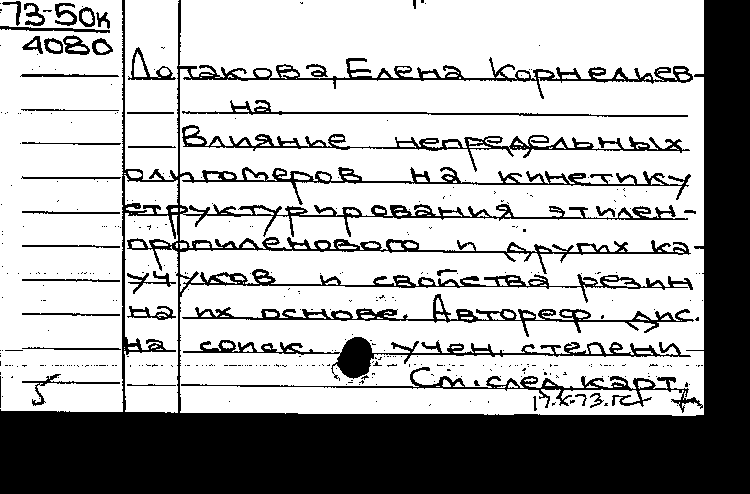 73-50к
4080
Лотакова, Елена Корнелиев-
на.
Влияние непредельных
олигомеров на кинетику
структурирования этилен-
пропиленового и других ка-
учуков и свойства резин
на их основе. Автореф. дис.
на соиск. учен. степени
См. след. карт.
5
17.X.73.